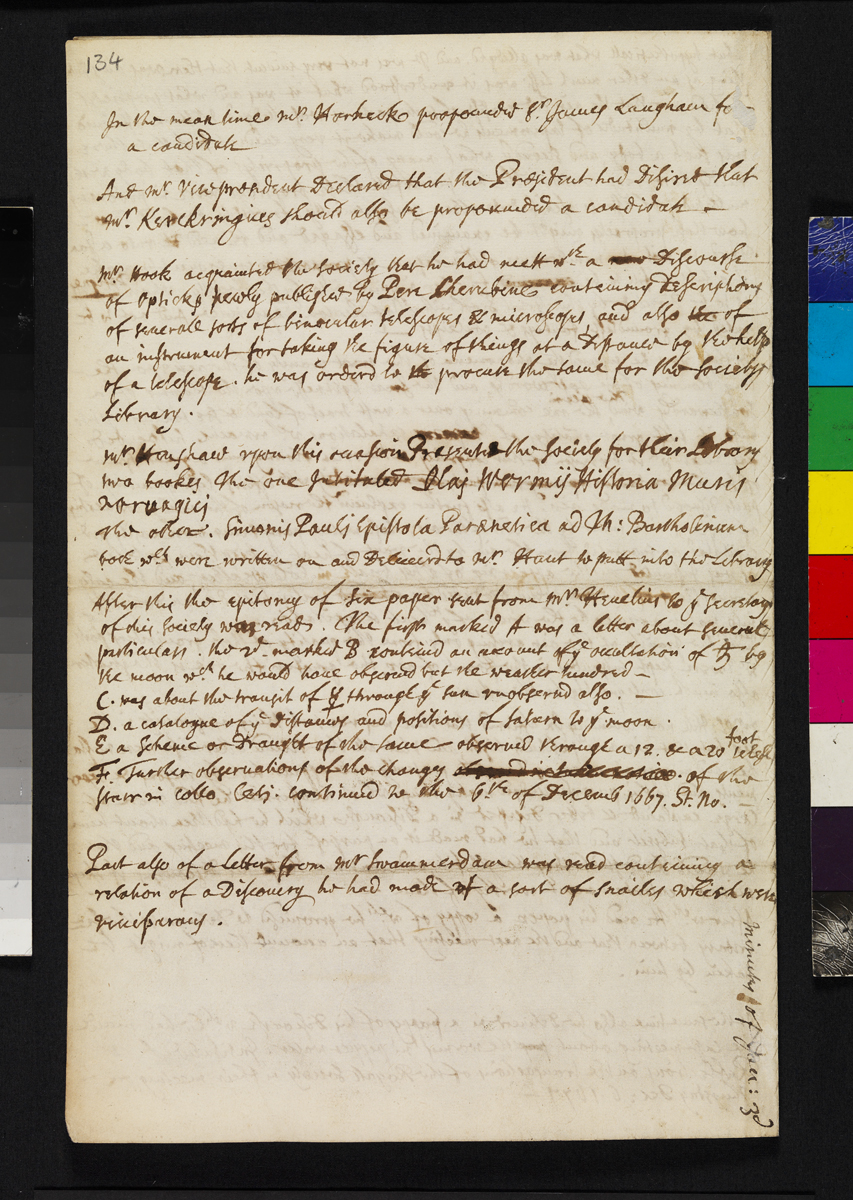 134
In the mean time mr. Horneck propounded Sr. James Langham fo
a candidate
And mr. Vicepræsident Declared that the Præsident had Desired that
mr. Kerckringius should also be propounded a candidate –
mr. Hook acquainted the Society that he had mett wth a new Discourse
of Opticks newly published by Pere Cherubine containing Descriptions
of severall sorts of binocular telescopes & microscopes, and also the of
an instrument for taking the figure of things at a distance by the help
of a telescope. he was orderd to procure the same for the Society
Library.
mr. Henshaw upon this occasion Presented the Society for their Library
two bookes the one Intituled Olaj Wormij Historia Muris
norvagicj
the other. Simonis Paulj Epistola Parænetica ad Th: Bartholinum
both wch were written on and Deliverd to mr. Hunt to putt into the Library
After this the epitomy of six paper sent from mr. Hevelius to ye secretary
of this society was read. The first marked A was a letter about severall
particulars. the 2d. marked B containd an account of ye occultation of ♄ by
the moon wch he would have observd but the weather hindred –
C. was about the transit of ☿ through ye sun unobservd also. –
D. a catalogue of ye distances and positions of saturn to ye moon.
E a Scheme or Draught of the same observed through a 12. & a 20 foot telesc
F. Further observations of the changes of the
starr in collo Cetj. continued to the 6th of Decemb 1667. St. No. –
Part also of a letter from mr Swammerdam was read containing a
relation of a Discovery he had made of a sort of snailes which were
viviparous.
minutes of Jan: 3d